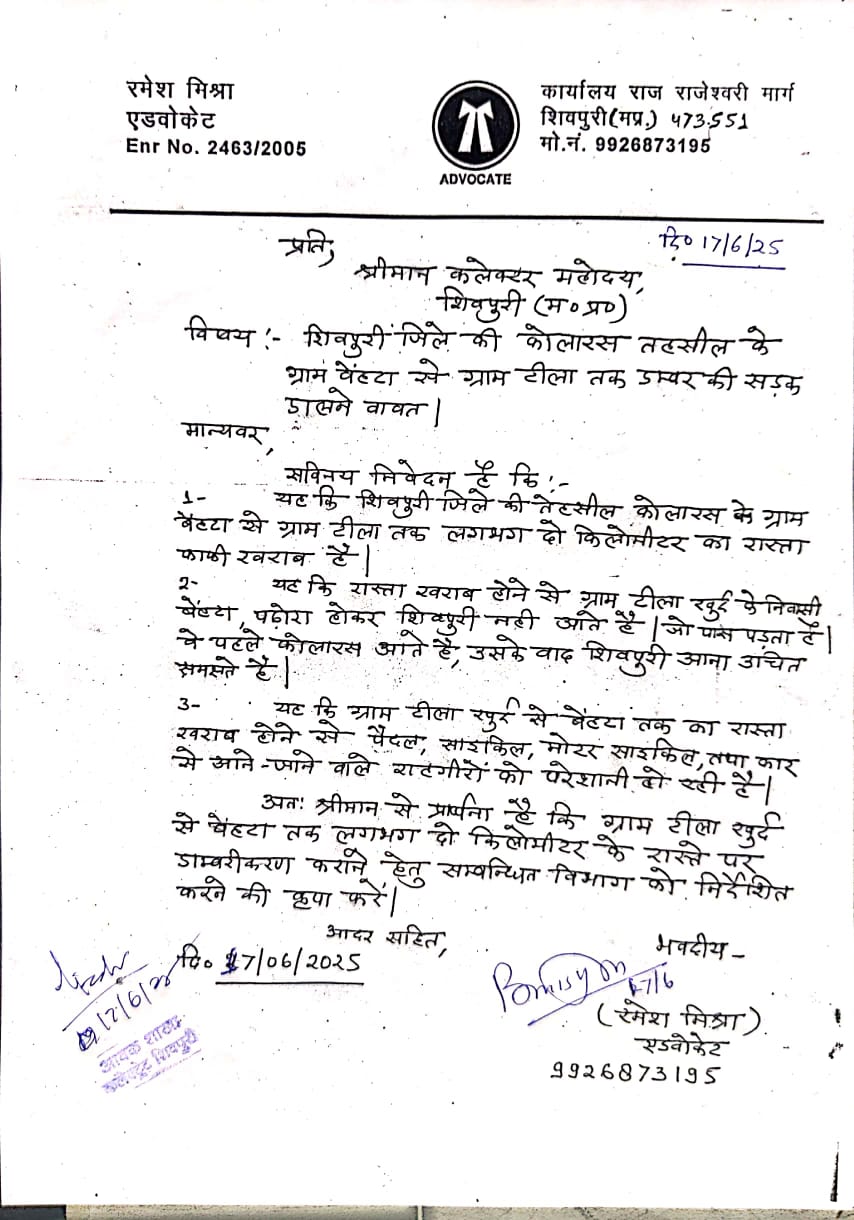 रमेश मिश्रा
एडवोकेट
Enr No. 2463/2005
ADVOCATE
कार्यालय राज राजेश्वरी मार्ग
शिवपुरी(मप्र.) 473551
मो.नं. 9926873195
दि० 17/6/25
प्रति,
श्रीमान कलेक्टर महोदय,
शिवपुरी (म०प्र०)
विषय :- शिवपुरी जिले की कोलारस तहसील के
ग्राम बेंहटा से ग्राम टीला तक डाम्बर की सड़क
डालने वावत|
मान्यवर,
सविनय निवेदन है कि :-
1- यह कि शिवपुरी जिले की तेहसील कोलारस के ग्राम
बेंहटा से ग्राम टीला तक लगभग दो किलोमीटर का रास्ता
काफी खराब है|
2- यह कि रास्ता खराब होने से ग्राम टीला खुर्द के निवासी
बेंहटा, पढ़ोरा होकर शिवपुरी नही आते है| जो पास पड़ता है|
वे पहले कोलारस आते है, उसके वाद शिवपुरी आना उचित
समझते है|
3- यह कि ग्राम टीला खुर्द से बेंहटा तक का रास्ता
खराब होने से पैदल, साइकिल, मोटर साइकिल, तथा कार
से आने-जाने वाले राहगीरों को परेशानी हो रही है|
अतः श्रीमान से प्रार्थना है कि ग्राम टीला खुर्द
से बेंहटा तक लगभग दो किलोमीटर के रास्ते पर
डाम्बरीकरण कराने हेतु सम्बन्धित विभाग को निर्देशित
करने की कृपा करें|
आदर सहित,
दि० 17/06/2025
भवदीय -
17/6
(रमेश मिश्रा)
एडवोकेट
9926873195
आवक शाखा
कलेक्ट्रेट शिवपुरी